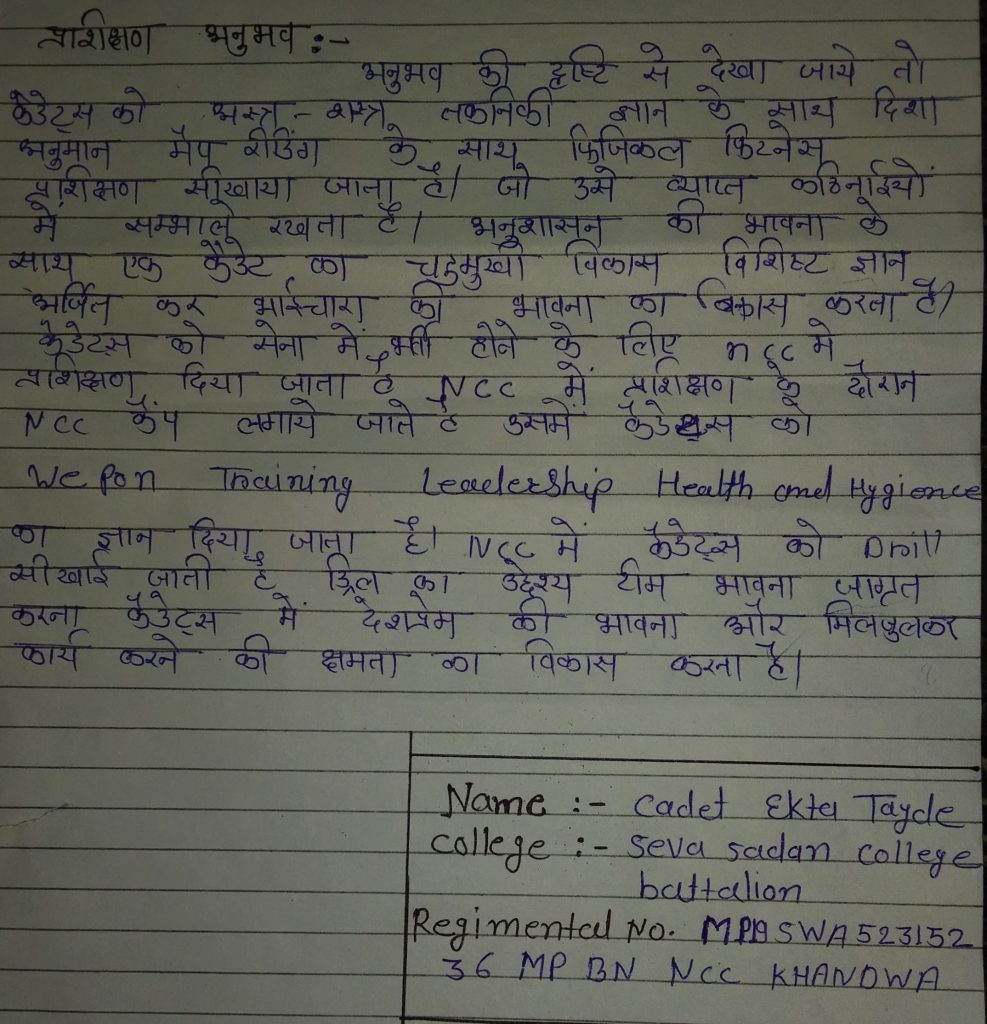 प्रशिक्षण अनुभव :-
अनुभव की दृष्टि से देखा जाये तो
कैडेट्स को अस्त्र - शस्त्र तकनिकी ज्ञान के साथ दिशा
अनुमान मैप रीडिंग के साथ फिजिकल फिटनेस
प्रशिक्षण सीखाया जाता है। जो उसे व्याप्त कठिनाईयों
में सम्भाले रखता है। अनुशासन की भावना के
साथ एक कैडेट का चहुमुखी विकास विशिष्ट ज्ञान
अर्जित कर भाईचारा की भावना का विकास करता है।
कैडेट्स को सेना में भर्ती होने के लिए ncc मे
प्रशिक्षण दिया जाता है NCC में प्रशिक्षण के दौरान
NCC कैंप लगाये जाते है उसमें कैडेट्स को
Wepon Training Leadership Health and Hygience
का ज्ञान दिया जाता है। NCC में कैडेट्स को Drill
सीखाई जाती है ड्रिल का उद्देश्य टीम भावना जागृत
करना कैडेट्स में देशप्रेम की भावना और मिलजुलकर
कार्य करने की क्षमता का विकास करता है।
Name :- Cadet Ekta Tayde
College :- Seva sadan college
battalion
Regimental No. SWA523152
36 MP BN NCC KHANDWA